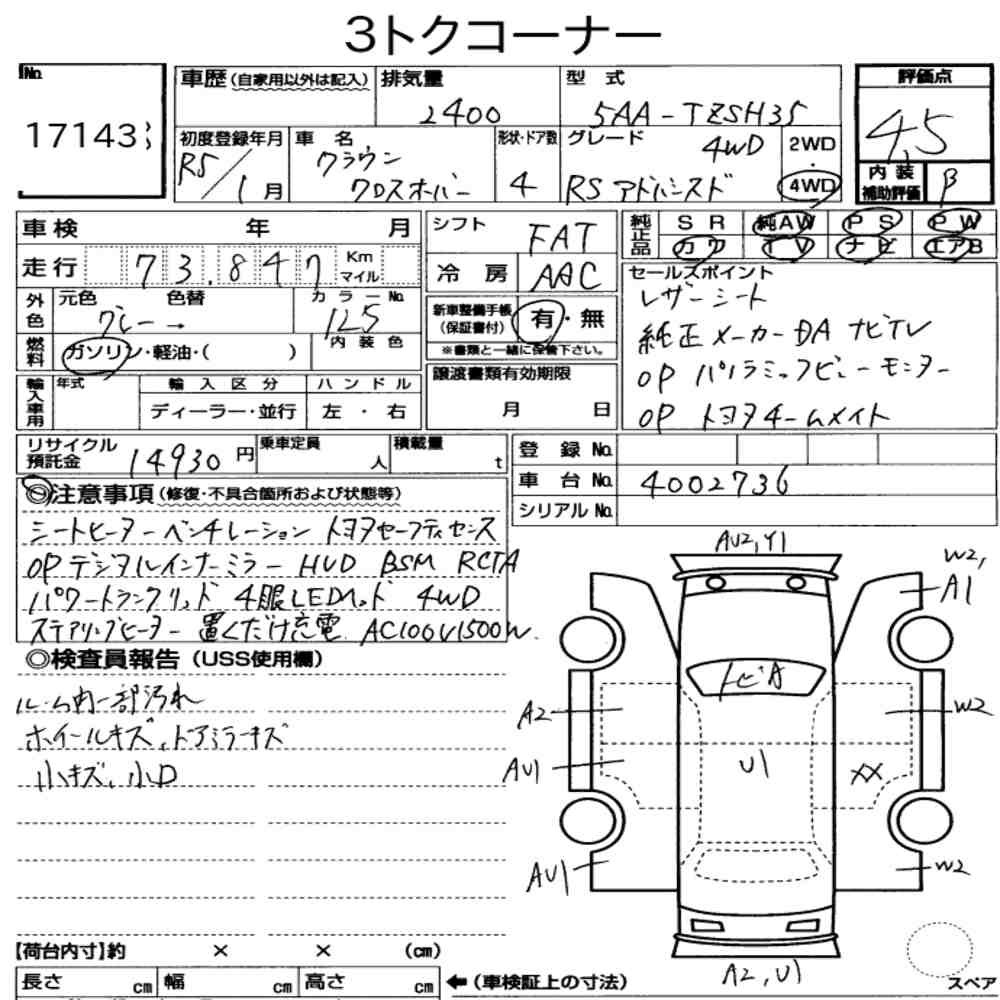 3トクコーナー
No.
17143
車歴(自家用以外は記入) 排気量 2400 型式 5AA-TZSH35
初度登録年月 R5/1月 車名 クラウン クロスオーバー 形状・ドア数 4 グレード 4WD RS アドバンスド 2WD・4WD
評価点
4.5
内装補助評価 B
車検 年 月
走行 73,847 Km マイル
外色 元色 グレー → 色替 カラーNo. 1L5
燃料 ガソリン・軽油・( ) 内装色
輸入車用 年式 輸入区分 ディーラー・並行 ハンドル 左・右
シフト FAT
冷房 AAC
新車整備手帳(保証書付) 有・無
※書類と一緒に保管下さい。
譲渡書類有効期限
月 日
純正品 SR 純AW PS PW
カワ TV ナビ エアB
セールスポイント
レザーシート
純正メーカーDA ナビTV
OP パノラミックビューモニター
OP トヨタチームメイト
リサイクル預託金 14930円 乗車定員 人 積載量 t
登録No.
車台No. 4002736
シリアルNo.
◎注意事項(修復・不具合箇所および状態等)
シートヒーター ベンチレーション トヨタセーフティセンス
OP デジタルインナーミラー HUD BSM RCTA
パワートランクリッド 4眼LEDヘッド 4WD
ステアリングヒーター 置くだけ充電 AC100V1500W
◎検査員報告(USS使用欄)
ルーム内一部汚れ
ホイールキズ、ドアミラーキズ
小キズ、小凹
AU2,Y1
W2,
A1
トビA
A2
W2
AU1
U1
XX
AU1
W2
A2,U1
スペア
【荷台内寸】約 × × (cm)
長さ cm 幅 cm 高さ cm ←(車検証上の寸法)